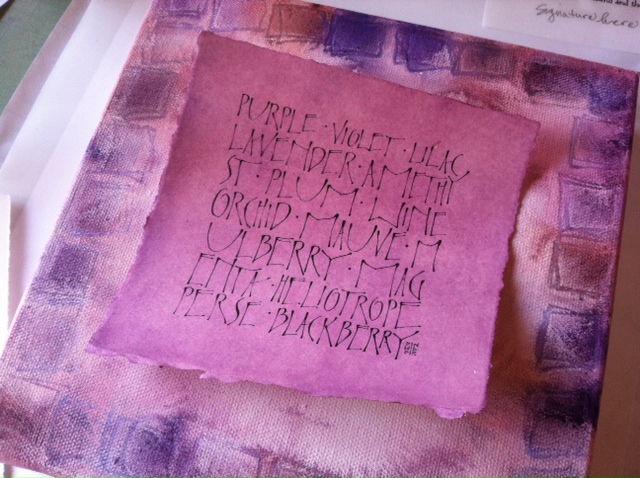 Signature here
PURPLE · VIOLET · LILAC
LAVENDER · AMETHY
ST · PLUM · WINE
ORCHID · MAUVE · M
ULBERRY · MAG
ENTA · HELIOTROPE
PERSE · BLACKBERRY